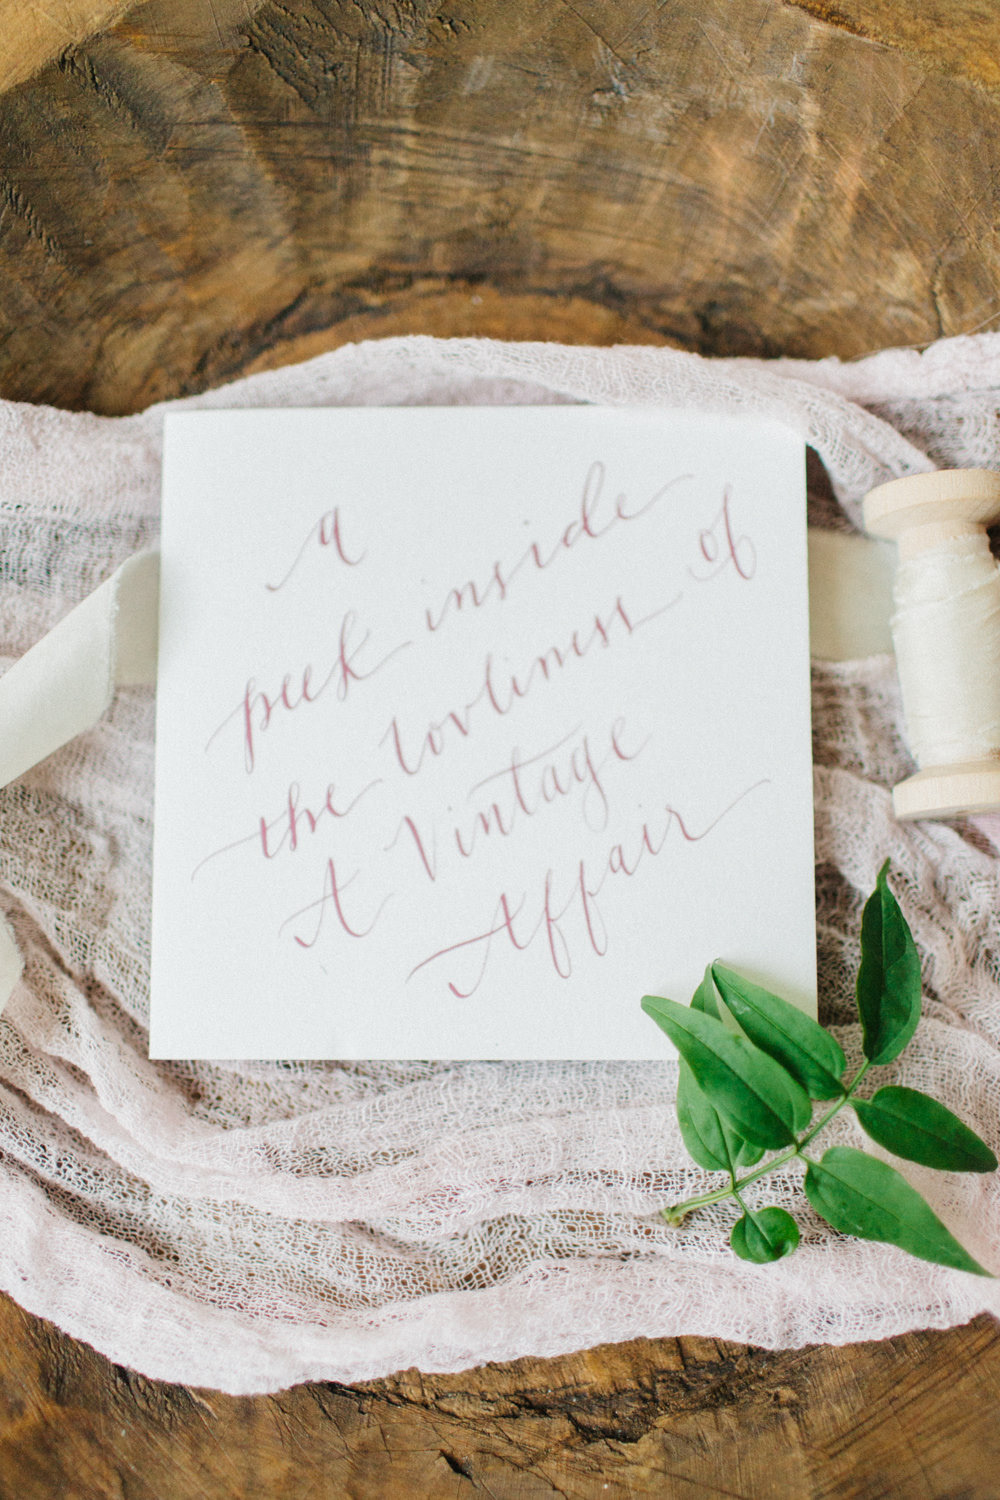 a
peek inside
the lovliness of
A Vintage
Affair